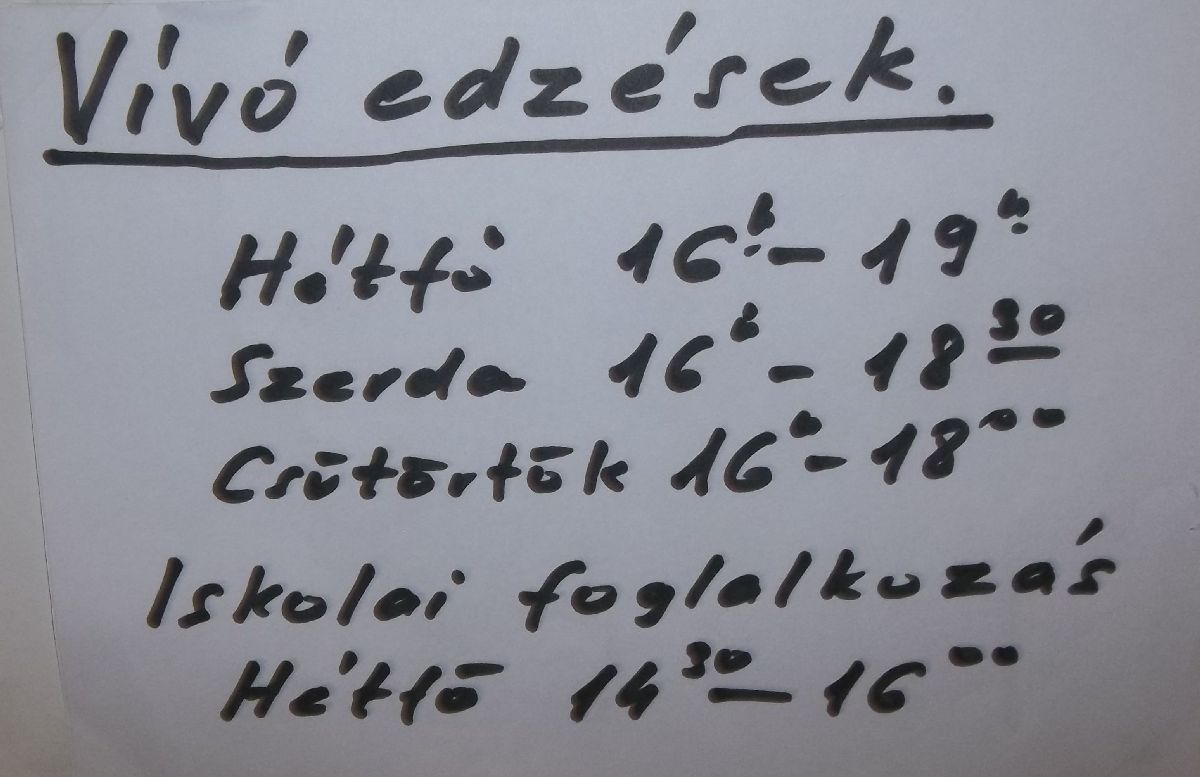 Vívó edzések.
Hétfő 16h. - 19h.
Szerda 16h - 18 30
Csütörtök 16h - 18 00
Iskolai foglalkozás
Hétfő 14 30 - 16 00